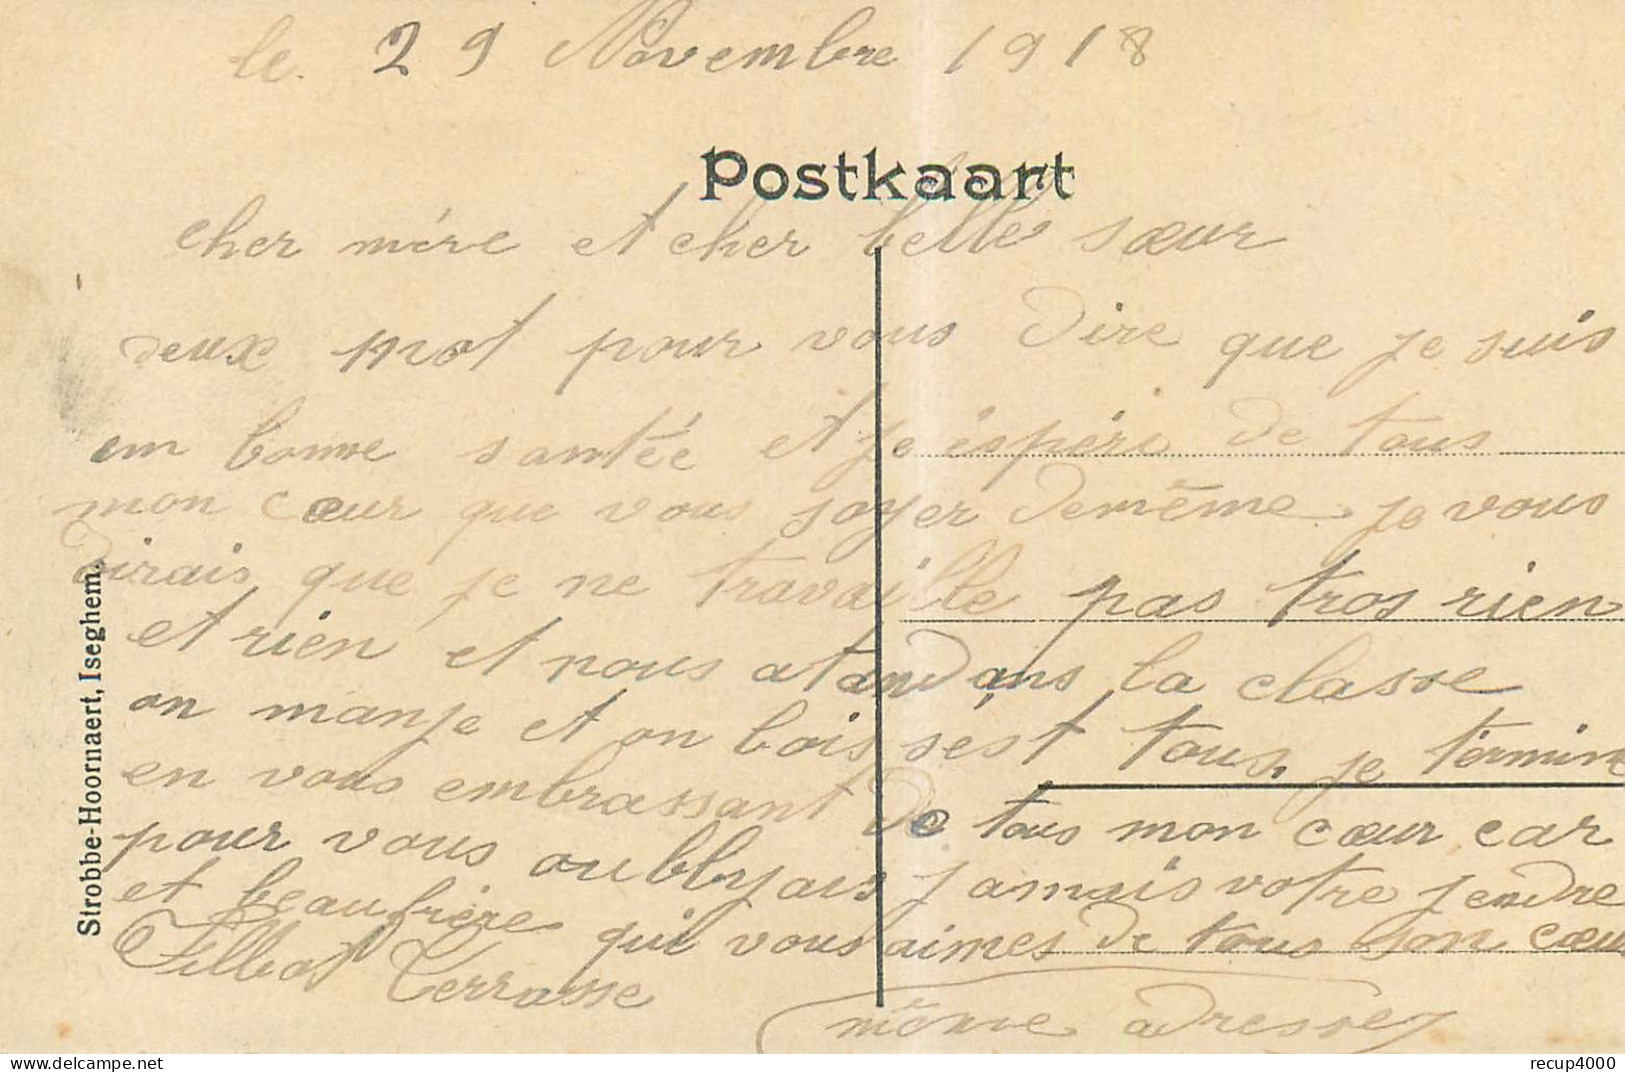 le 29 Novembre 1918
Postkaart
cher mère et cher belle sœur
deux mot pour vous dire que je suis
en bonne santée et je éspére de tous
mon cœur que vous soyer demême je vous
dirais que je ne travaille pas tros rien
et rien et nous atandans la classe
on manje et on bois sest tous. je términe
en vous embrassant de tous mon cœur car
pour vous oubblyais jamais votre jendre
et beaufrère qui vous aimes de tous son cœur
Filliot Terrasse
même adresse
Strobbe-Hoornaert, Iseghem.
recup4000